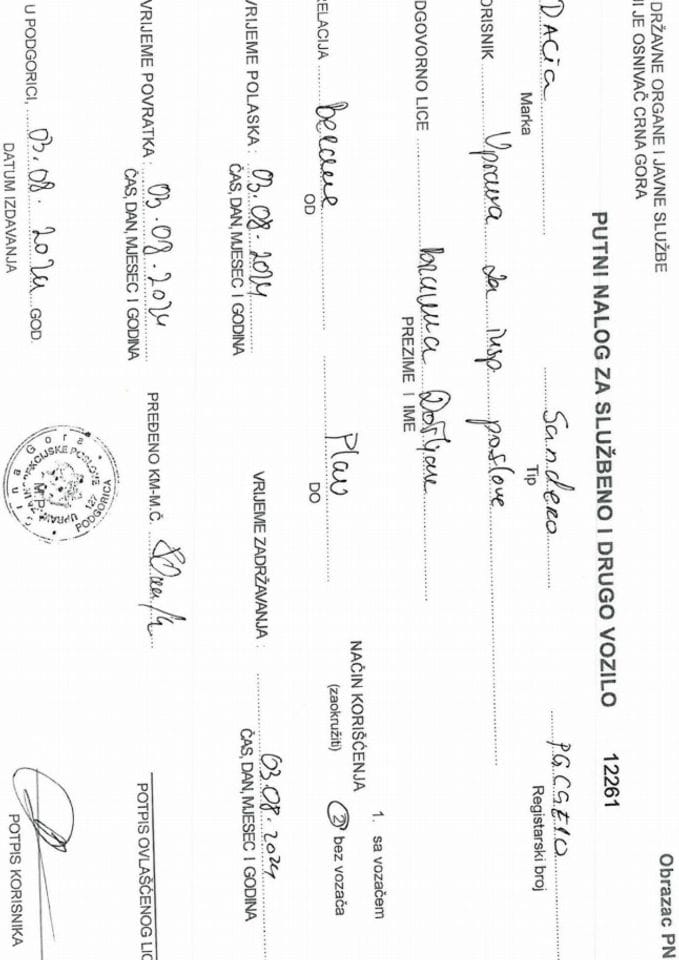 DRŽAVNE ORGANE I JAVNE SLUŽBE
JE OSNIVAČ CRNA GORA
Obrazac PN
PUTNI NALOG ZA SLUŽBENO I DRUGO VOZILO 12261
DACIA Sandero
Marka Tip Registarski broj
ORISNIK Uprava za insp poslove
DGOVORNO LICE
PREZIME I IME
1. sa vozačem
NAČIN KORIŠĆENJA
(zaokružiti) 2 bez vozača
RELACIJA Berane Plav
OD DO
VRIJEME POLASKA : 03.08.2024 VRIJEME ZADRŽAVANJA : 03.08.2024
ČAS, DAN, MJESEC I GODINA ČAS, DAN, MJESEC I GODINA
VRIJEME POVRATKA : 03.08.2024 PREĐENO KM-M.Č.
ČAS, DAN, MJESEC I GODINA POTPIS OVLAŠĆENOG LIC
U PODGORICI, 03.08.2024 GOD.
DATUM IZDAVANJA POTPIS KORISNIKA
Crna Gora
UPRAVA ZA INSPEKCIJSKE POSLOVE
127
PODGORICA
M.P.